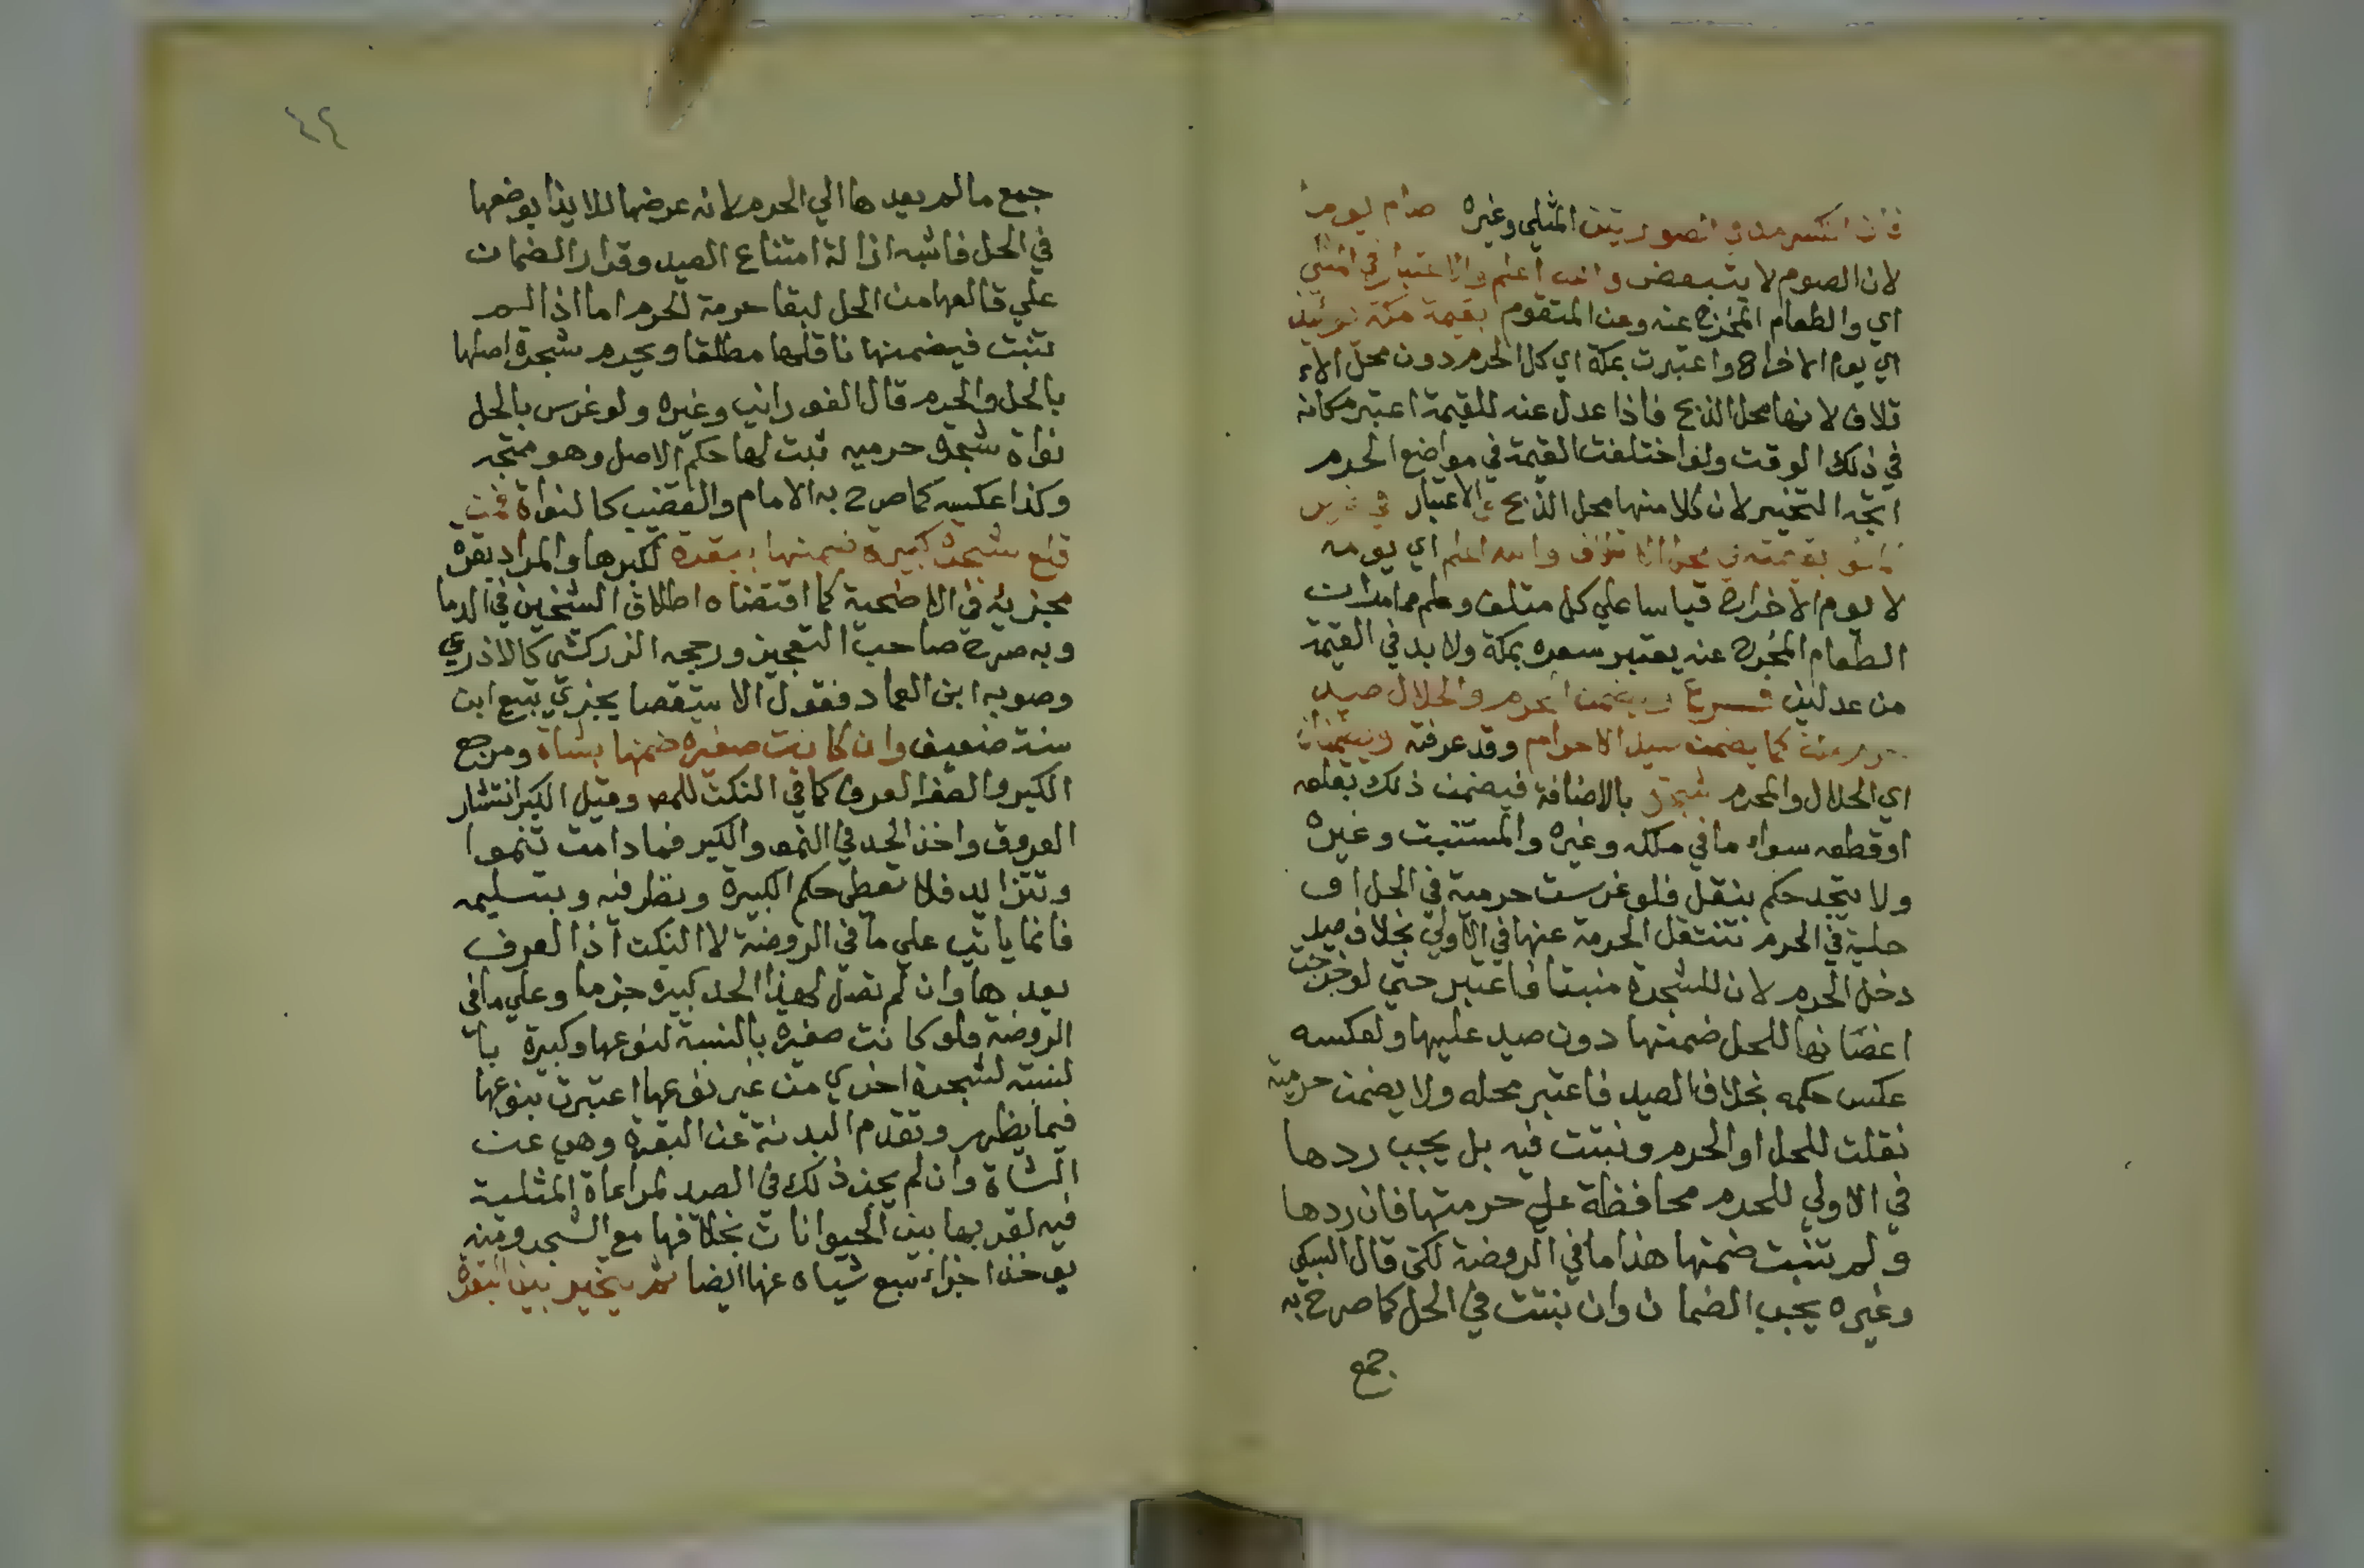 فان انكسر مد في الصورتين المثلي وغيره صام يوما
لان الصوم لا يتبعض والله اعلم والاعتبار في المثلي
اي والطعام المخرج عنه وعن المتقوم بقيمة مكة يومئذ
اي يوم الاخراج واعتبرت بمكة اي كل الحرم دون محل الا
تلاف لانها محل الذبح فاذا عدل عنه للقيمة اعتبر مكانه
في ذلك الوقت ولو اختلفت القيمة في مواضع الحرم
اتجه التخيير لان كلا منها محل الذبح والاعتبار في غير
المثلي بقيمته في محل الاتلاف والله اعلم اي يومه
لا يوم الاخراج قياسا علي كل متلف وعلم مما مر ان
الطعام المخرج عنه يعتبر سعره بمكة ولا بد في القيمة
من عدلين فرع ويضمن المحرم والحلال صيد
حرم مكة كما يضمن صيد الاحرام وقد عرفته ويضمنان
اي الحلال والمحرم شجره بالاضافة فيضمن ذلك بقلعه
او قطعه سواء ما في ملكه وغيره والمستنبت وغيره
ولا يتجدد حكم بنقل فلو غرست حرمية في الحل او
حلية في الحرم تنتقل الحرمة عنها في الاولي بخلاف صيد
دخل الحرم لان للشجرة منبتا فاعتبر حتي لو خرجت
اغصانها للحل ضمنها دون صيد عليها ولعكسه
عكس حكمه بخلاف الصيد فاعتبر محله ولا يضمن حرمية
نقلت للحل او الحرم ونبتت فيه بل يجب ردها
في الاولي للحرم محافظة علي حرمتها فان ردها
ولم تنبت ضمنها هذا ما في الروضة لكن قال السبكي
وغيره يجب الضمان وان نبتت في الحل كما صرح به
جمع
٤٢
جمع ما لم يعدها الي الحرم لانه عرضها للايذا بوضعها
في الحل فاشبه ازالة امتناع الصيد وقرار الضمان
علي قالعها من الحل لبقا حرمة الحرم اما اذا لم
تنبت فيضمنها ناقلها مطلقا ويحرم شجرة اصلها
بالحل والحرم قال الفوراني وغيره ولو غرس بالحل
نواة شجرة حرميه ثبت لها حكم الاصل وهو متجه
وكذا عكسه كما صرح به الامام والقضيب كالنواة فمن
قلع شجرة كبيرة ضمنها ببقرة لكبرها والمراد بقرة
مجزية في الاضحية كما اقتضاه اطلاق الشيخين في الدما
وبه صرح صاحب التعجيز ورجحه الزركشي كالاذرعي
وصوبه ابن العماد فقول الاستقصا يجزي تبيع ابن
سنة ضعيف وان كانت صغيره ضمنها بشاة ومرجع
الكبر والصغر العرف كما في النكت للمص وقيل الكبر انتشار
العروق واخذ الحد في النمو والكبر فما دامت تنموا
وتتزايد فلا تعطي حكم الكبيرة ونظر فيه وبتسليمه
فانما ياتي علي ما في الروضة لا النكت اذ العرف
يعدها وان لم تصل لهذا الحد كبيرة جزما وعلي ما في
الروضة فلو كانت صغيرة بالنسبة لنوعها وكبيرة با
لنسبة لشجرة اخري من غير نوعها اعتبرت بنوعها
فيما يظهر وتقدم البدنة عن البقرة وهي عن
الشاة وان لم يجز ذلك في الصيد لمراعاة المثلية
فيه لقربها بين الحيوانات بخلافها مع الشجر ومنه
يوخذ اجزاء سبع شياه عنها ايضا ثم يتخير بين البقرة